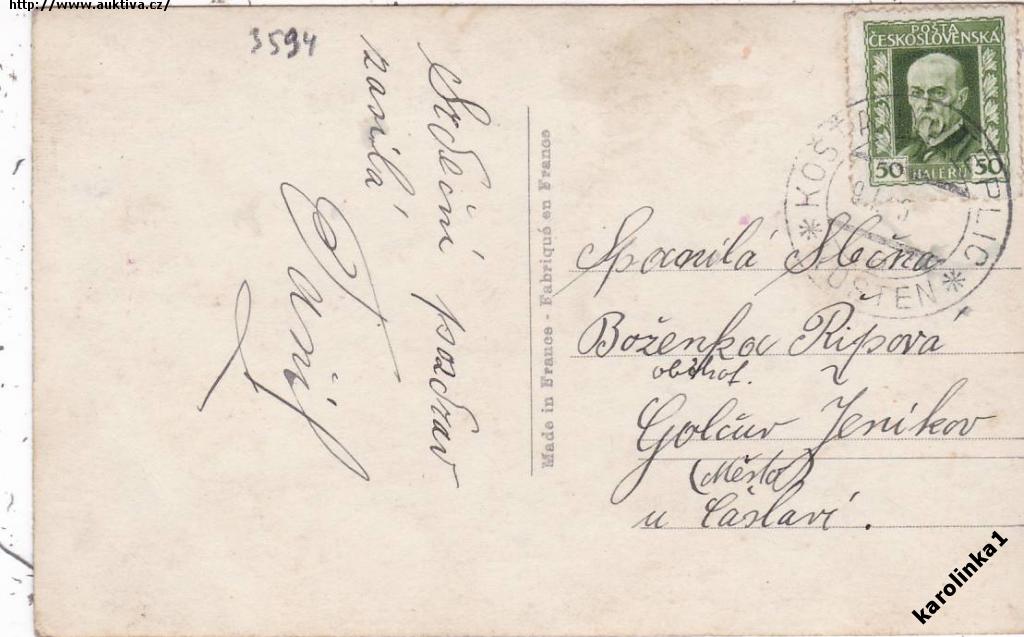 http://www.auktiva.cz/
3594
Srdečný pozdrav
zasílá
Made in France - Fabriqué en France
POŠTA
ČESKOSLOVENSKA
50 HALÉŘŮ 50
KOŠŤ
PLIC
KOSTEN
Spanilá Slečna
Boženka Řipová
Golčův Jeníkov
(Město)
u Čáslaví.
karolinka1